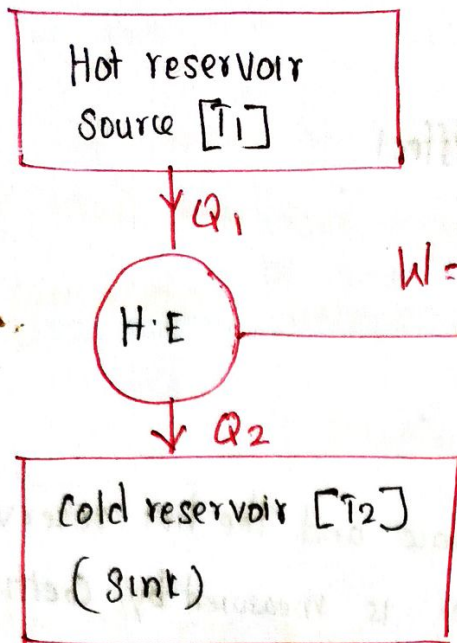 Hot reservoir
Source [T1]
Q1
W=
H.E
Q2
Cold reservoir [T2]
(Sink)